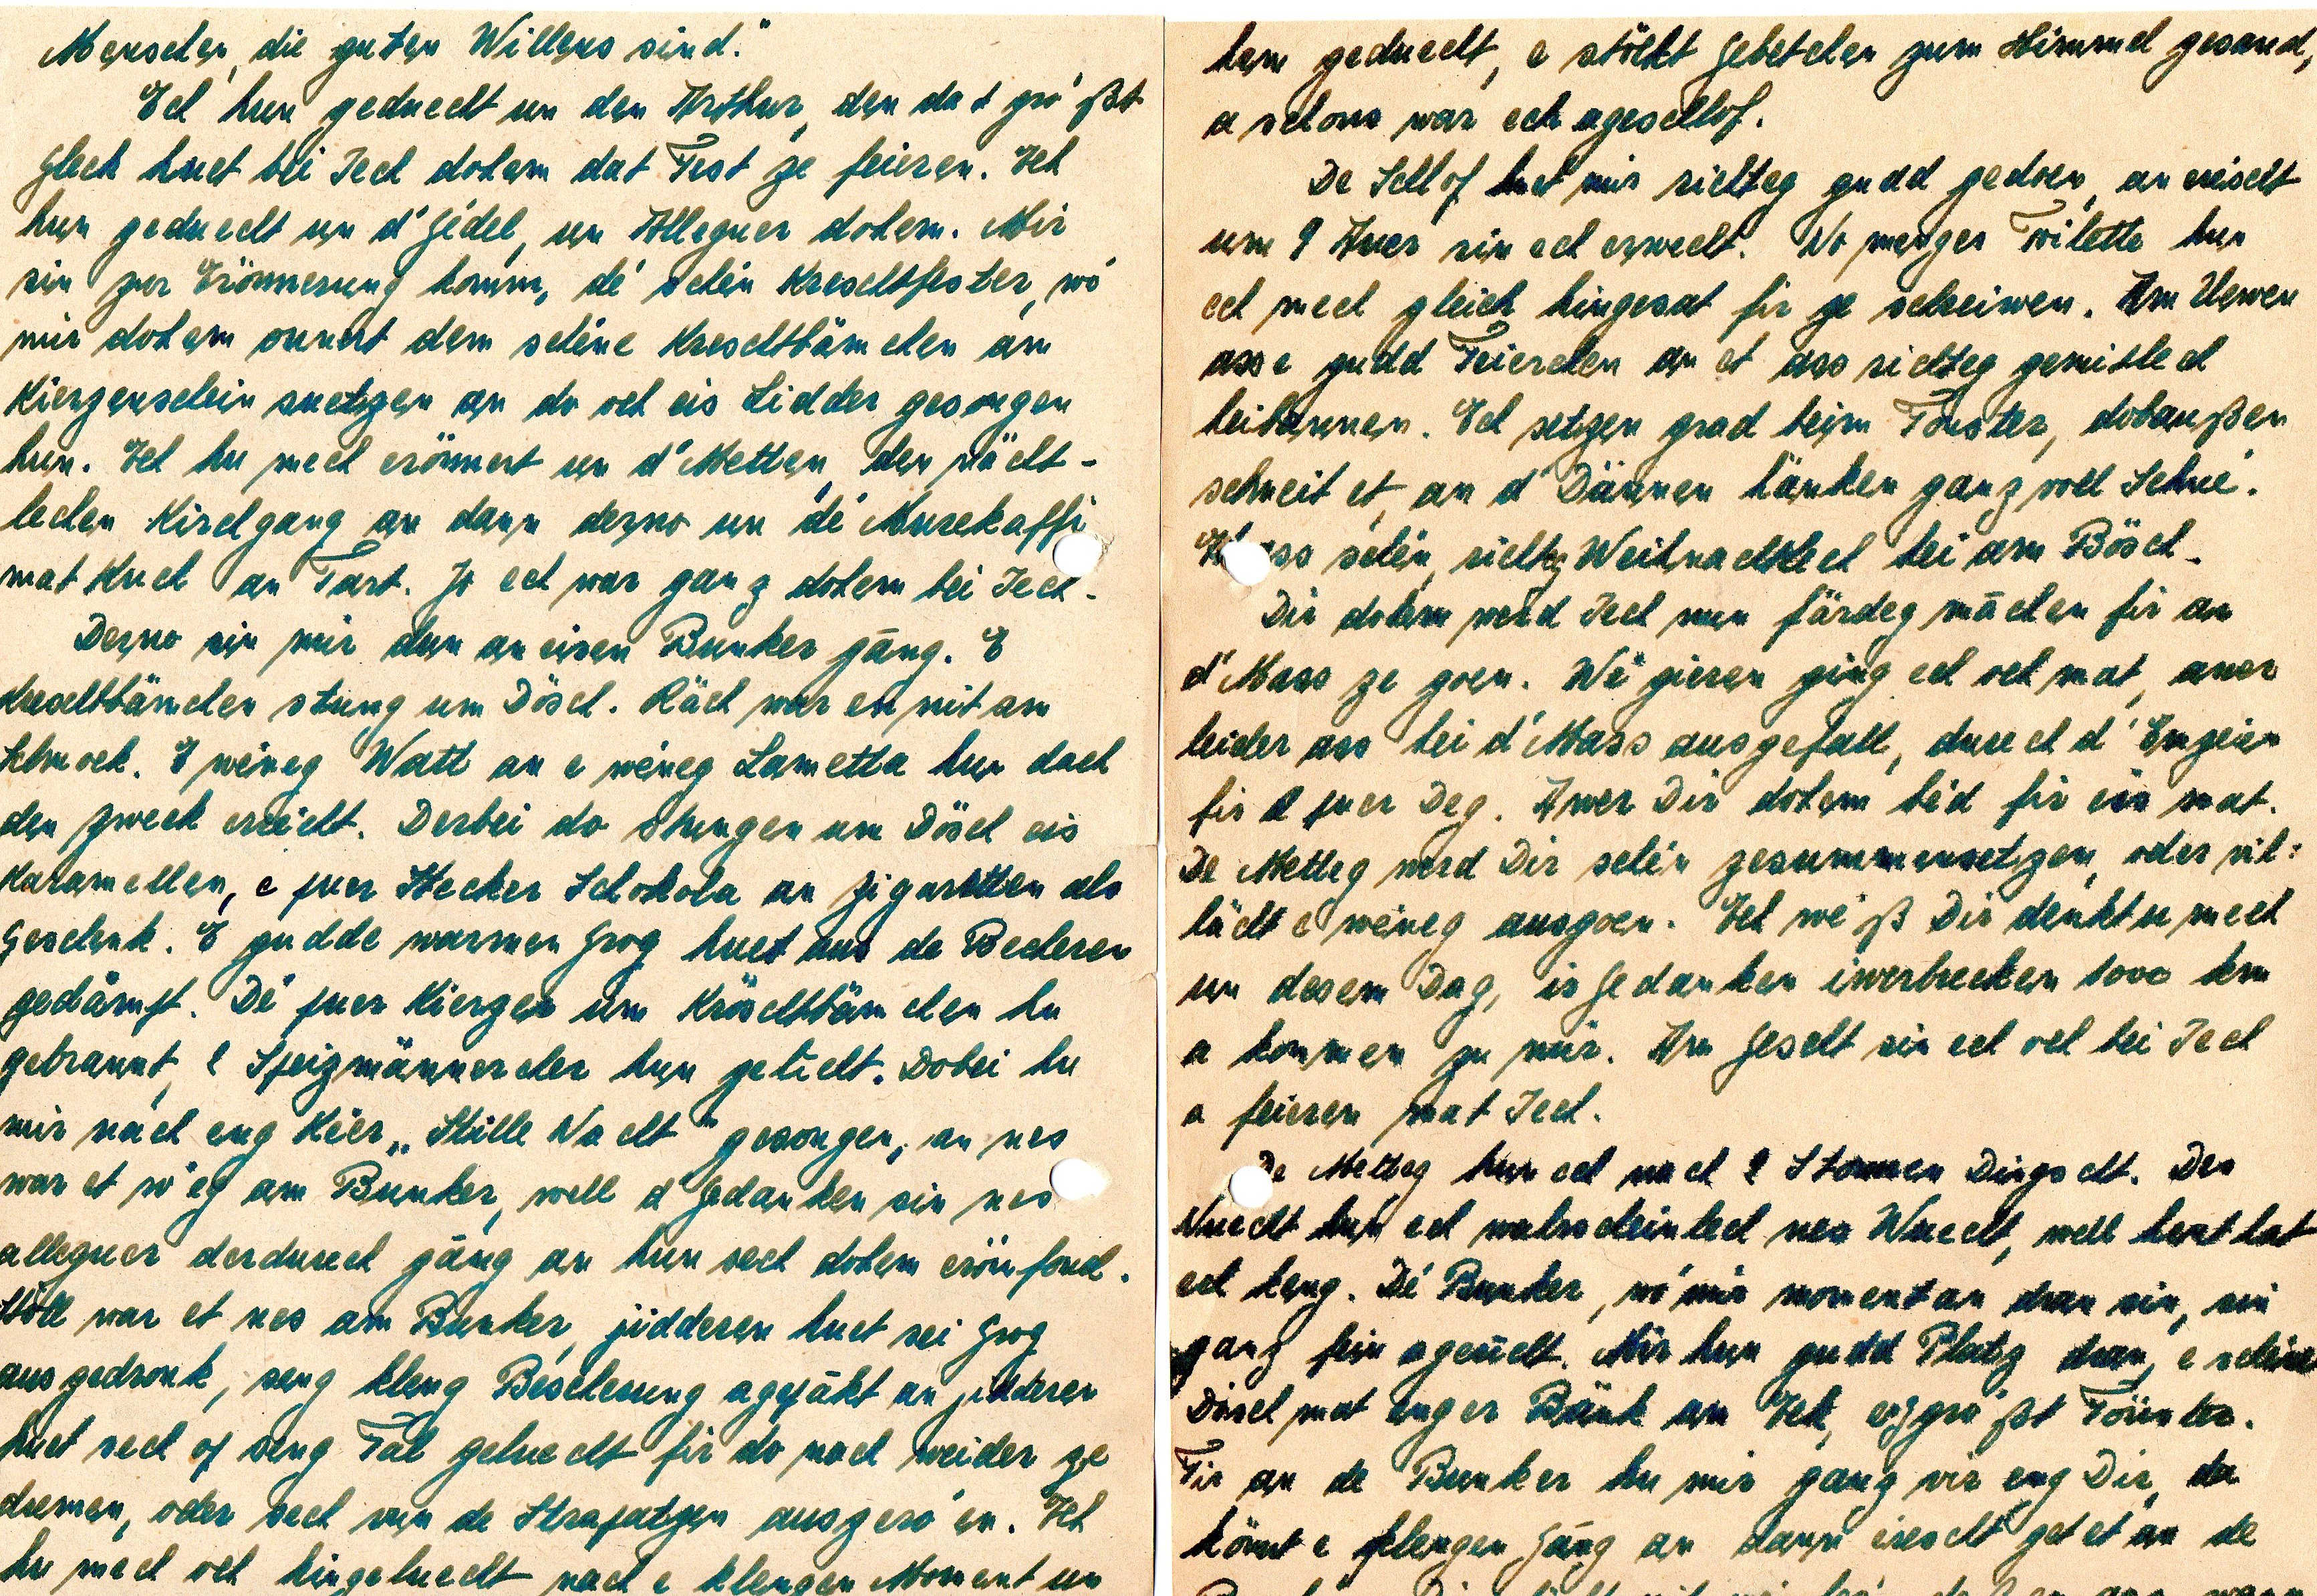 Menschen, die guten Willens sind."
Ech hun geduecht un den Arthur, den dat gro'ßt
Gleck huet bei Iech dohem dat Fest ze feieren. Ech
hun geduecht un d'Gédel, un Alleguer dohem. Mir
sin zur Erönnerung komm, dé schéin Kreschtfester, wó
mir dohem onnert dem schéine Kreschtbämchen am
Kierzenschein suetzen an do och eis Lidder gesongen
hun. Ech hu mech erönnert un d'Metten, den nächt-
lechen Kirchgang an dann derno un dé Musekaffi
mat Kuch an Tart. Jo ech war ganz dohem bei Iech.
Derno sin mir dun an eisen Bunker gäng. E
Kreschtbämchen stung um Dösch. Räch war en nit am
Schmock. E wéneg Watt an e wéneg Lametta hun dach
den Zweck erreicht. Derbei do stungen um Dösch eis
Karamellen, e puer Stecker Schokola an Zigaretten als
Geschenk. E gudde warmen Grog huet aus de Becheren
gedämft. Dé puer Kierzen um Kröschtbämchen hu
gebrannt, 2 Speizmännercher hun geliicht. Dobei hu
mir nach eng Kéer „Stille Nacht" gesongen, an nes
war et ro'eg am Bunker, well d'Gedanken sin nes
alleguer derduerch gäng an hun sech dohem erömfond.
Stöll war et nes am Bunker, jidderen huet sei Grog
ausgedronk, seng kleng Bescherung agepäkt an jidderen
huet sech op seng Fal geluecht fir do nach weider ze
dremen, oder sech vun de Strapatzen auszero'en. Ech
hu mech och hingeluecht nach e klengen Moment un
hem geduecht, e stöllt Gebetchen zum Himmel gesand,
a schons war ech ageschlof.
De Schlof huet mir richteg gudd gedoen, an eréischt
um 9 Auer sin ech erwecht. No menger Toilette hun
ech mech gleich hingesat fir ze schreiwen. Am Uewen
ass e gudd Feierchen an et ass richteg gemitlech
heibannen. Ech setzen grad beim Fenster, dobaußen
schneit et, an d'Dännen hänken ganz voll Schné.
ass schéin, richteg Weihnachtlech hei am Bösch.
Dir dohem werd Iech nun färdeg mächen fir an
d'Mass ze goen. Wé gieren ging ech och mat, awer
leider ass hei d'Mass ausgefall, duerch d'
fir 2 puer Deg. Awer Dir dohem béd fir eis mat.
De Metteg werd Dir schéin zesummensetzen, oder vil-
lächt e wéneg ausgoen. Ech wé'ß Dir denkt u mech
un desem Dag, is Gedanken iwerbrecken 1000 km
a kommen zu mir. Am Gescht sin ech och bei Iech
a feieren mat Iech.
De Metteg hun ech nach 2 Stonnen Dingscht. Des
Nuecht hun ech wahrscheinlech nes Wuecht, well hent hat
ech keng. Dé Bunker, wó mir momentan dran sin, sin
ganz fein ageriicht. Mir hun gudd Platz dran, e schéine
Dösch mat enger Bänk an Eck, gro'ßt Fönster.
Fir an de Bunker hu mir ganz vir eng Dir, da
könnt e klengen Gäng an dann eréischt get et an de